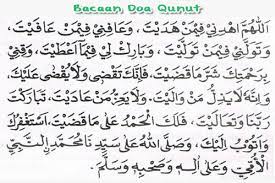 Bacaan Doa Qunut
اَللّٰهُمَّ اهْدِنِيْ فِيْمَنْ هَدَيْتَ، وَعَافِنِيْ فِيْمَنْ عَافَيْتَ،
وَتَوَلَّنِيْ فِيْمَنْ تَوَلَّيْتَ، وَبَارِكْ لِيْ فِيْمَا اَعْطَيْتَ، وَقِنِيْ
بِرَحْمَتِكَ شَرَّ مَا قَضَيْتَ، فَإِنَّكَ تَقْضِيْ وَلَا يُقْضَى عَلَيْكَ
وَإِنَّهُ لَا يَذِلُّ مَنْ وَالَيْتَ، وَلَا يَعِزُّ مَنْ عَادَيْتَ، تَبَارَكْتَ
رَبَّنَا وَتَعَالَيْتَ، فَلَكَ الْحَمْدُ عَلَى مَا قَضَيْتَ، اَسْتَغْفِرُكَ
وَاَتُوْبُ اِلَيْكَ، وَصَلَّى اللهُ عَلَى سَيِّدِنَا مُحَمَّدٍ النَّبِيِّ
الْاُمِّيِّ وَعَلَى آلِهِ وَصَحْبِهِ وَسَلَّمَ.